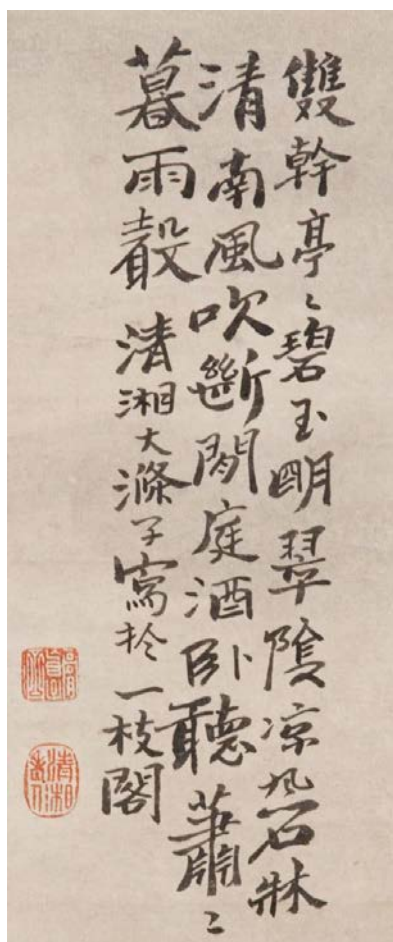 雙幹亭〻碧玉明翠陰凉石牀
清南風吹斷閒庭酒臥聽蕭〻
暮雨聲 清湘大滌子寫於一枝閣
清湘老人